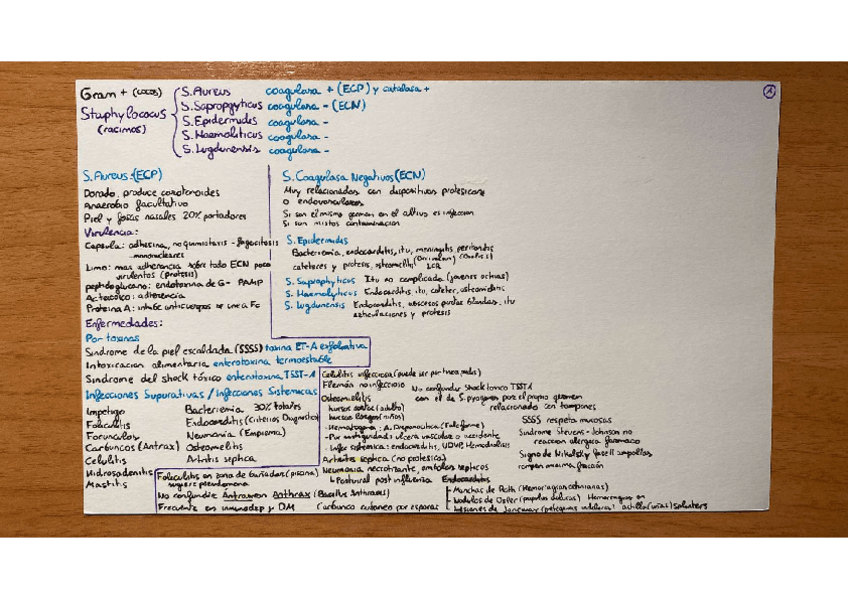 Gram + (cocos)
Staphylococus
(racimos)
S. Aureus coagulasa + (ECP) y catalasa +
S. Sapropgyticus coagulasa - (ECN)
S. Epidermides coagulasa -
S. Haemoliticus coagulasa -
S. Lugdunensis coagulasa -
S. Aureus: (ECP)
Dorado, produce carotenoides
Anaerobio facultativo
Piel y fosas nasales 20% portadores
Virulencia:
Capsula: adhesina, no quimiotaxis - fagocitosis
mononucleares
Limo: mas adherencia sobre todo ECN poco
virulentos (protesis)
peptidoglucano: endotoxina de G- PAMP
Ac teicoico: adherencia
Proteina A: inhibe anticuerpos se une a Fc
Enfermedades:
Por toxinas
Sindrome de la piel escaldada (SSSS) toxina ET-A exfoliativa
Intoxicacion alimentaria enterotoxina termoestable
Sindrome del shock tóxico enterotoxina TSST-1
Infecciones Supurativas / Infecciones Sistemicas
Impetigo
Foliculitis
Forunculos
Carbuncos (Antrax)
Celulitis
Hidrosadenitis
Mastitis
Bacteriemia 30% totales
Endocarditis (Criterios Diagnostico)
Neumonia (Empiema)
Osteomelitis
Artritis septica
S. Coagulasa Negativos (ECN)
Muy relacionados con dispositivos protesicos
o endovasculares
Si son el mismo germen en el cultivo es infeccion
Si son mixtos contaminacion
S. Epidermides
Bacteriemia, endocarditis, itu, meningitis, peritonitis
cateteres y protesis, osteomielitis LCR
S. Saprophyticos Itu no complicada (jovenes activas)
S. Haemolyticos Endocarditis, itu, cateter, osteomielitis
S. Lugdunensis Endocarditis, abscesos partes blandas, itu
articulaciones y protesis
Celulitis infecciosa (puede ser por
Flemón no infeccioso
Osteomelitis
huesos cortos (adulto)
huesos largos (niños)
- Hematogena: A. Drepanocitica (Falciforme)
- Por contiguidad: ulcera vascular o accidente
- Infec sistemica: endocarditis, UDVP, Hemodialisis
Artritis septica (no protesica)
Neumonia necrotizante, embolos septicos
Postviral post influenza
No confundir Shock toxico TSST1
con el de S. pyogenes por el propio germen
relacionado con tampones
SSSS respeta mucosas
Sindrome Stevens-Johnson no
reaccion alergica farmaco
Signo de Nikolsky fragil ampollas
rompen minima fricción
Foliculitis en zona de bañador (piscina)
sugiere pseudomona
No confundir Antrax con Anthrax (Bacillus Anthracis)
Frecuente en inmunodep y DM Carbunco cutaneo por esporas
Endocarditis
- Manchas de Roth (Hemorragias retinianas)
- Nodulos de Osler (papulas dolorosas) Hemorragias en
- Lesiones de Janeway (petequias indoloras) astilla (uñas) splinters